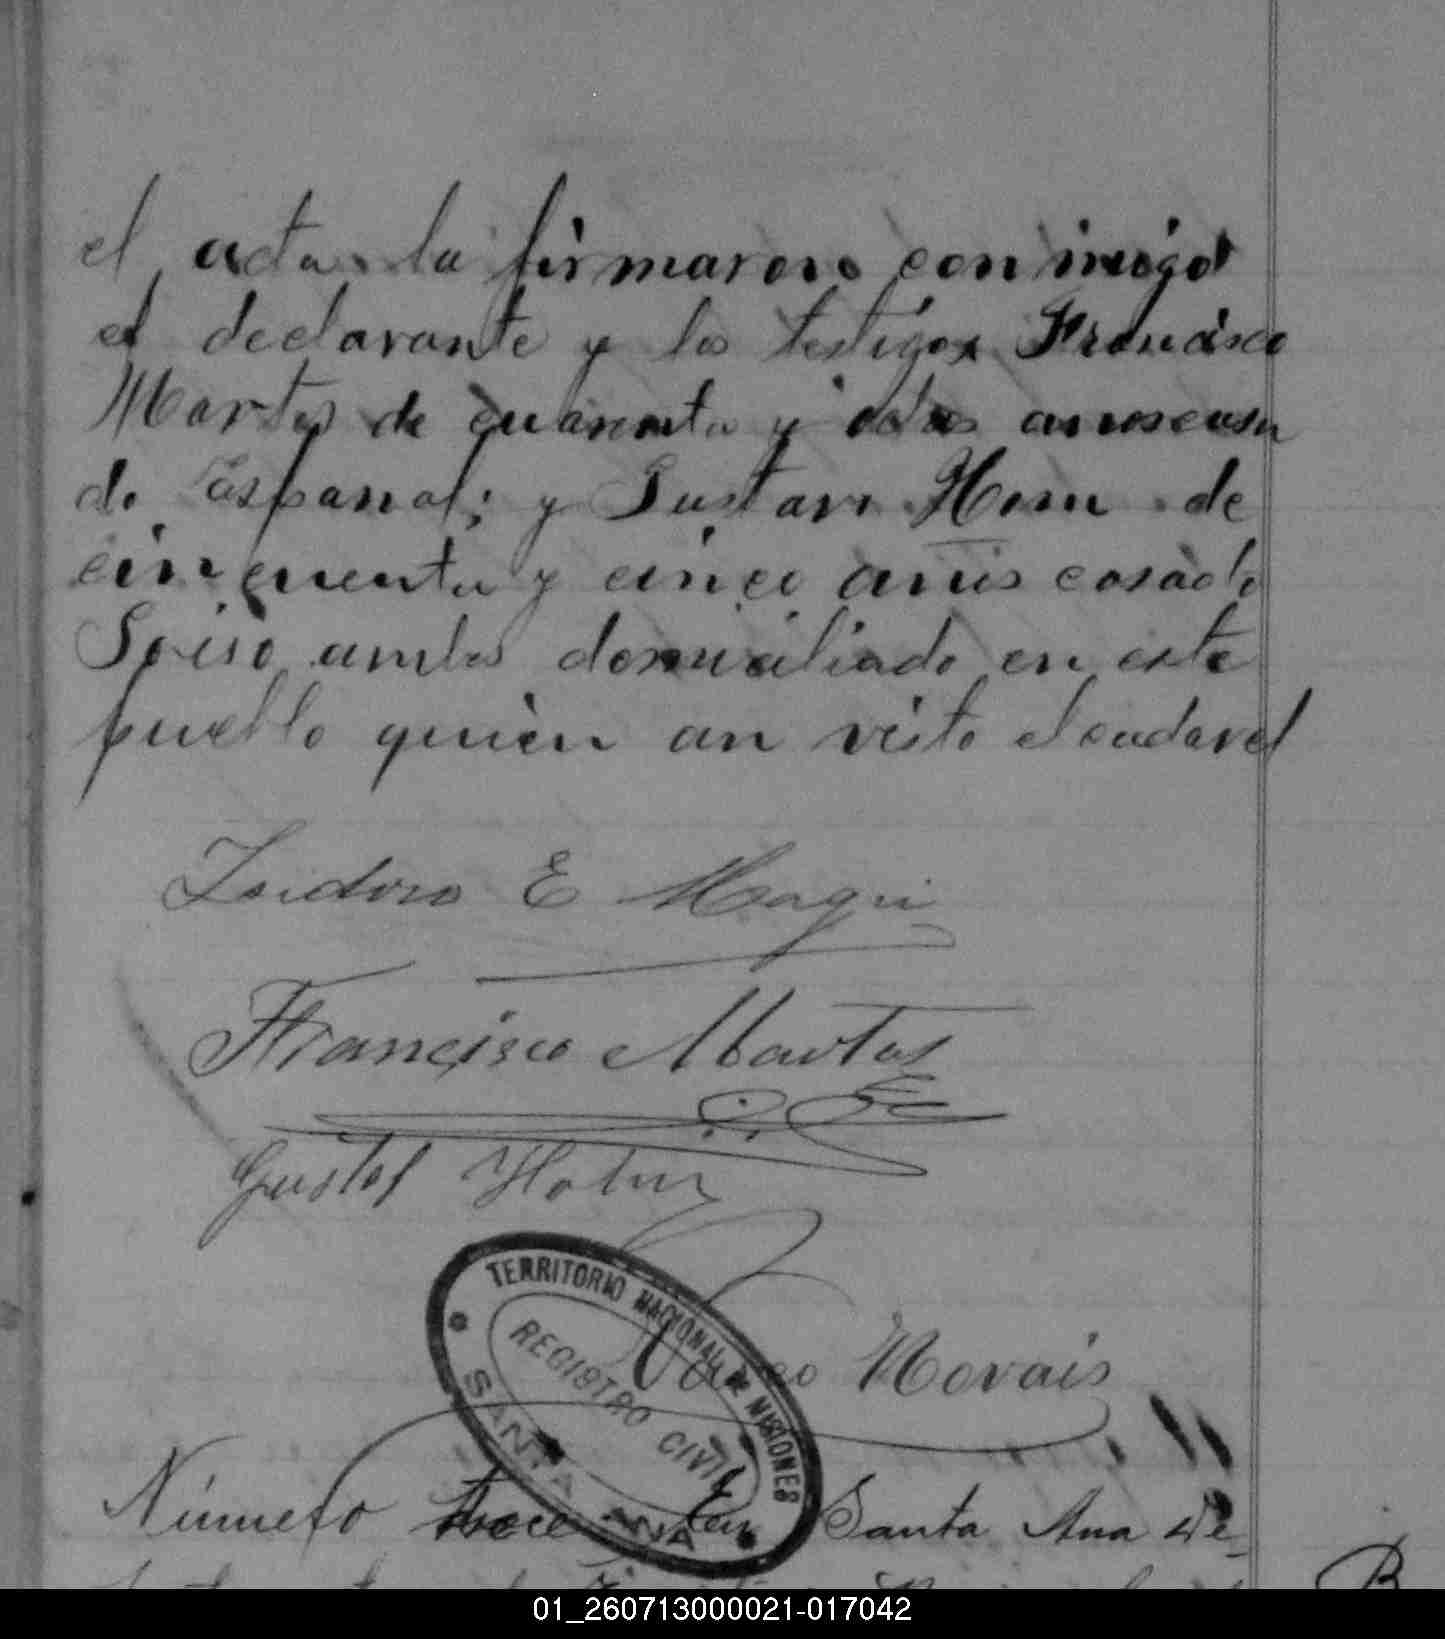 el acta la firmaron conmigo
el declarante y los testigos Francisco
Martos de cuarenta y años casa
do Español; y Gustavo de
cincuenta y cinco años casado
Soiso ambos domiciliado en este
pueblo quien an visto el cadavel
Isidoro E
Francisco Martos
Gustof
TERRITORIO NACIONAL DE MISIONES
REGISTRO CIVIL
SANTA ANA
Novais
Número trece En Santa Ana De-
01_260713000021-017042